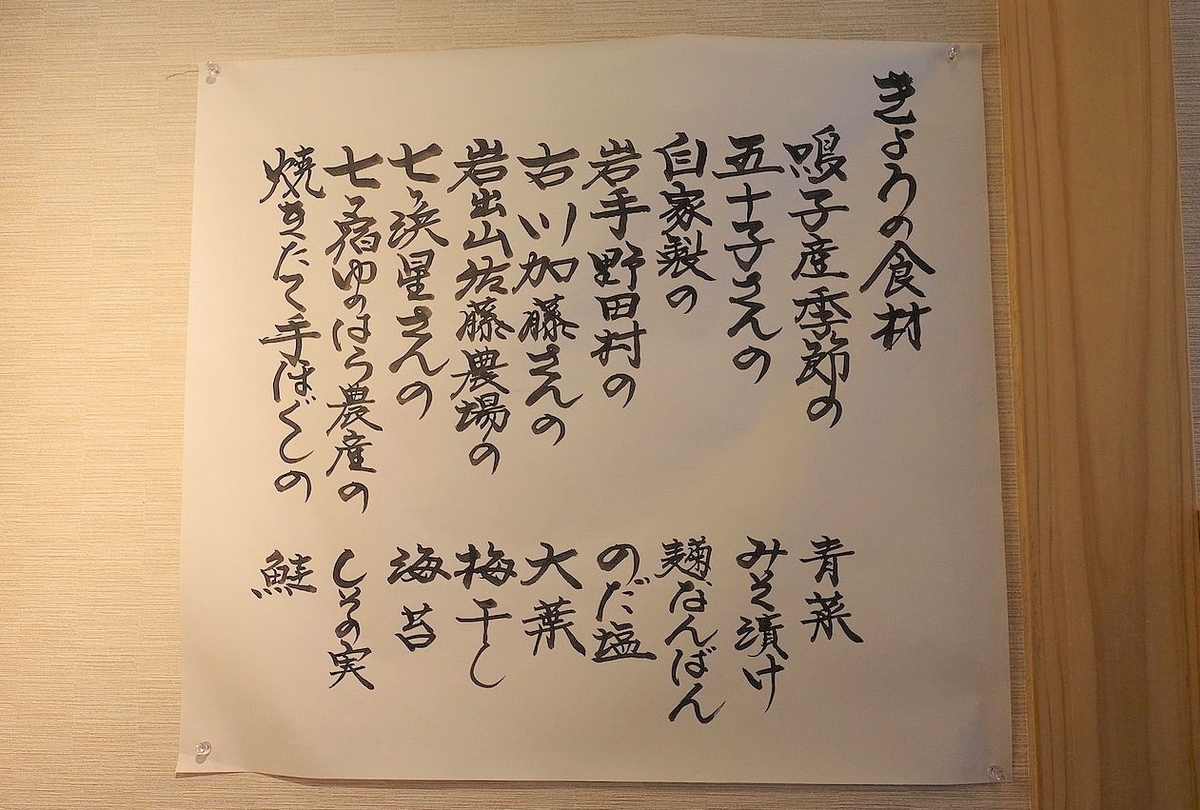 きょうの食材
鳴子産季節の 青菜
五十子さんの みそ漬け
自家製の 麹なんばん
岩手野田村の のだ塩
古川加藤さんの 大葉
岩出山佐藤農場の 梅干し
七ヶ浜星さんの 海苔
七ヶ宿ゆのはら農産の しその実
焼きたて手ほぐしの 鮭